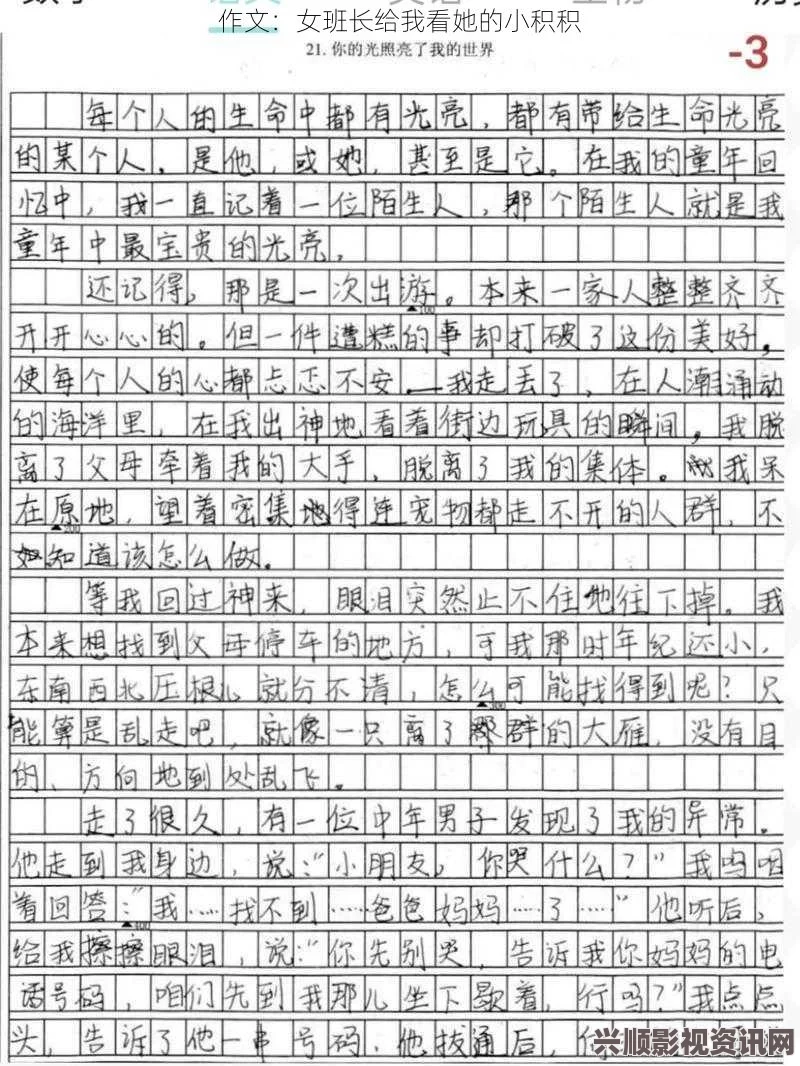 作文：女班长给我看她的小积积
21. 你的光照亮了我的世界
-3
每个人的生命中都有光亮，都有带给生命光亮
的某个人，是他，或她，甚至是它。在我的童年回
忆中，我一直记着一位陌生人，那个陌生人就是我
童年中最宝贵的光亮。
还记得，那是一次出游。本来一家人整整齐齐
100
开开心心的。但一件遭糕的事却打破了这份美好，
使每个人的心都忐忑不安——我走丢了，在人潮涌动
的海洋里，在我出神地看着街边玩具的瞬间，我脱
离了父母牵着我的大手，脱离了我的集体。我呆
在原地，望着密集地得连宠物都走不开的人群，不
200
知道该怎么做。
等我回过神来，眼泪突然止不住地往下掉。我
本来想找到父母停车的地方，可我那时年纪还小，
东南西北压根儿就分不清，怎么可能找得到呢？只
300
能算是乱走吧，就像一只离了群的大雁，没有目
的、方向地到处乱飞。
走了很久，有一位中年男子发现了我的异常。
他走到我身边，说：“小朋友，你哭什么？”我呜咽
着回答：“我……找不到……爸爸妈妈……了……”他听后，
400
给我擦擦眼泪，说：“你先别哭，告诉我你妈妈的电
话号码，咱们先到我那儿坐下歇着，行吗？”我点点
头，告诉了他一串号码。他拨通后，
兴顺影视资讯网